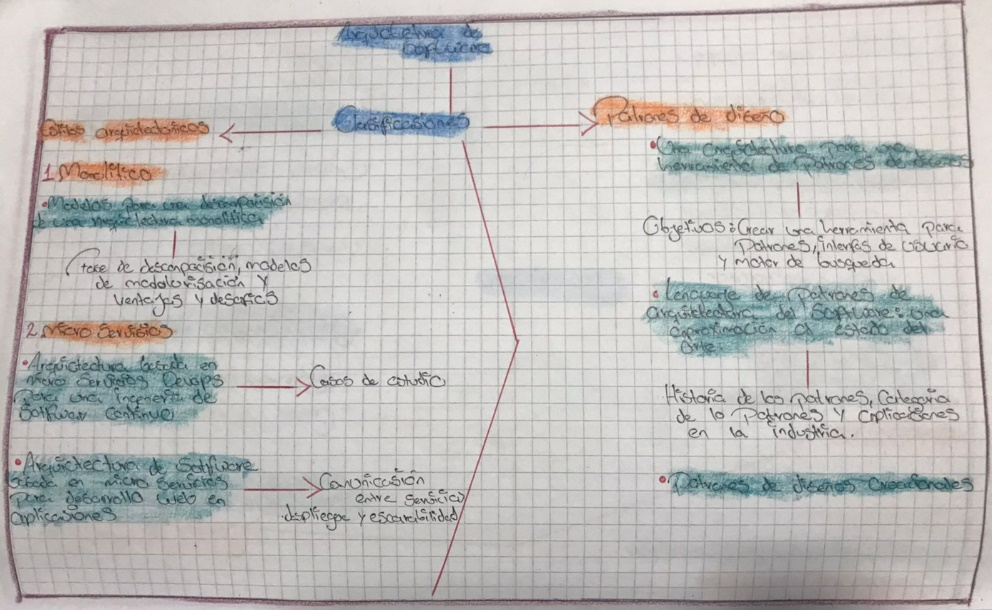 Arquitectura de
software
Clasificasiones
Estilos arquitectonicos
1. Monolitico
• Modelos para una descomposición
de una arquitectura monolitica
fase de descomposición, modelos
de modalorisación y
ventajas y desafios
2. Micro Servisios
• Arquitectura basada en
micro Servicios Devops
para una ingenieria de
Software continuo
Casos de estudio
• Arquictectura de Software
basada en micro Servicios
para desarrollo web en
aplicasiones
Comonicasión
entre servicios
despliegue y escarabilidad
Patrones de diseño
• Una arquitectura para una
herramienta de Patrones de diseños
Objetivos: Crear una herramienta para
Patrones, interfas de usuario
y motor de busqueda
• Lenguaje de Patrones de
arquitectura del Software: una
aproximación al estado del
arte.
Historia de los patrones, Categoria
de lo Patrones y aplicasiones
en la industria.
• Patrones de diseños Creacionales